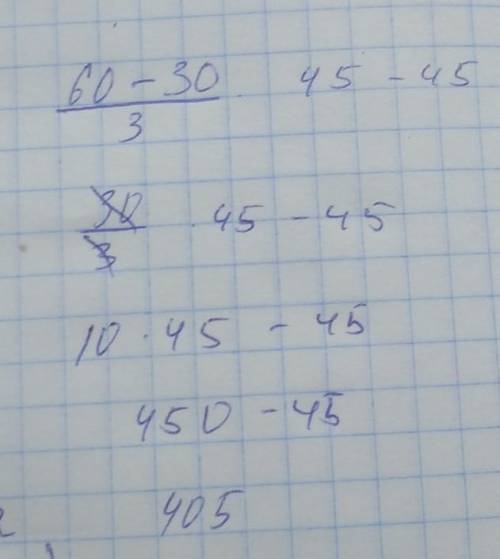 60 - 30 / 3 · 45 - 45
30 / 3 · 45 - 45
10 · 45 - 45
450 - 45
405